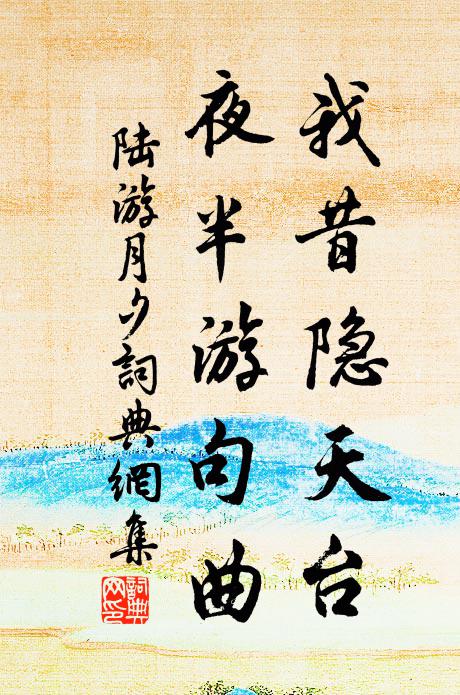 我昔隐天台
夜半游句曲
陆游月夕詞典網集
詞典